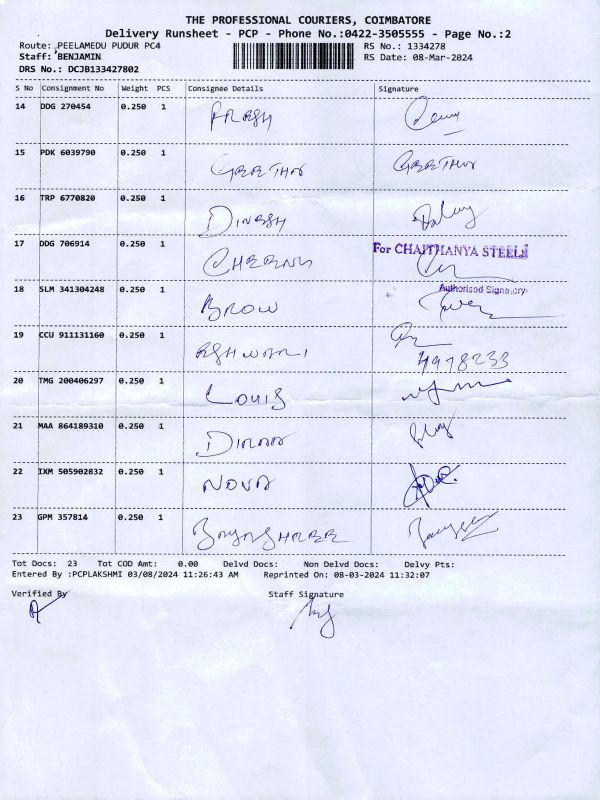 THE PROFESSIONAL COURIERS, COIMBATORE
Delivery Runsheet - PCP - Phone No.:0422-3505555 - Page No.:2
Route: PEELAMEDU PUDUR PC4 RS No.: 1334278
Staff: BENJAMIN RS Date: 08-Mar-2024
DRS No.: DCJB133427802
S No Consignment No Weight PCS Consignee Details Signature
14 DDG 270454 0.250 1
15 PDK 6039790 0.250 1 GEETHA GEETHA
16 TRP 6770820 0.250 1 DINESH
17 DDG 706914 0.250 1 For CHAITHANYA STEELS
Authorised Signatory
18 SLM 341304248 0.250 1 BROW
19 CCU 911131160 0.250 1 ASHWANI
4978233
20 TMG 200406297 0.250 1 LOUIS
21 MAA 864189310 0.250 1
22 IXM 505902832 0.250 1 NOVA
23 GPM 357814 0.250 1
Tot Docs: 23 Tot COD Amt: 0.00 Delvd Docs: Non Delvd Docs: Delvy Pts:
Entered By :PCPLAKSHMI 03/08/2024 11:26:43 AM Reprinted On: 08-03-2024 11:32:07
Verified By Staff Signature